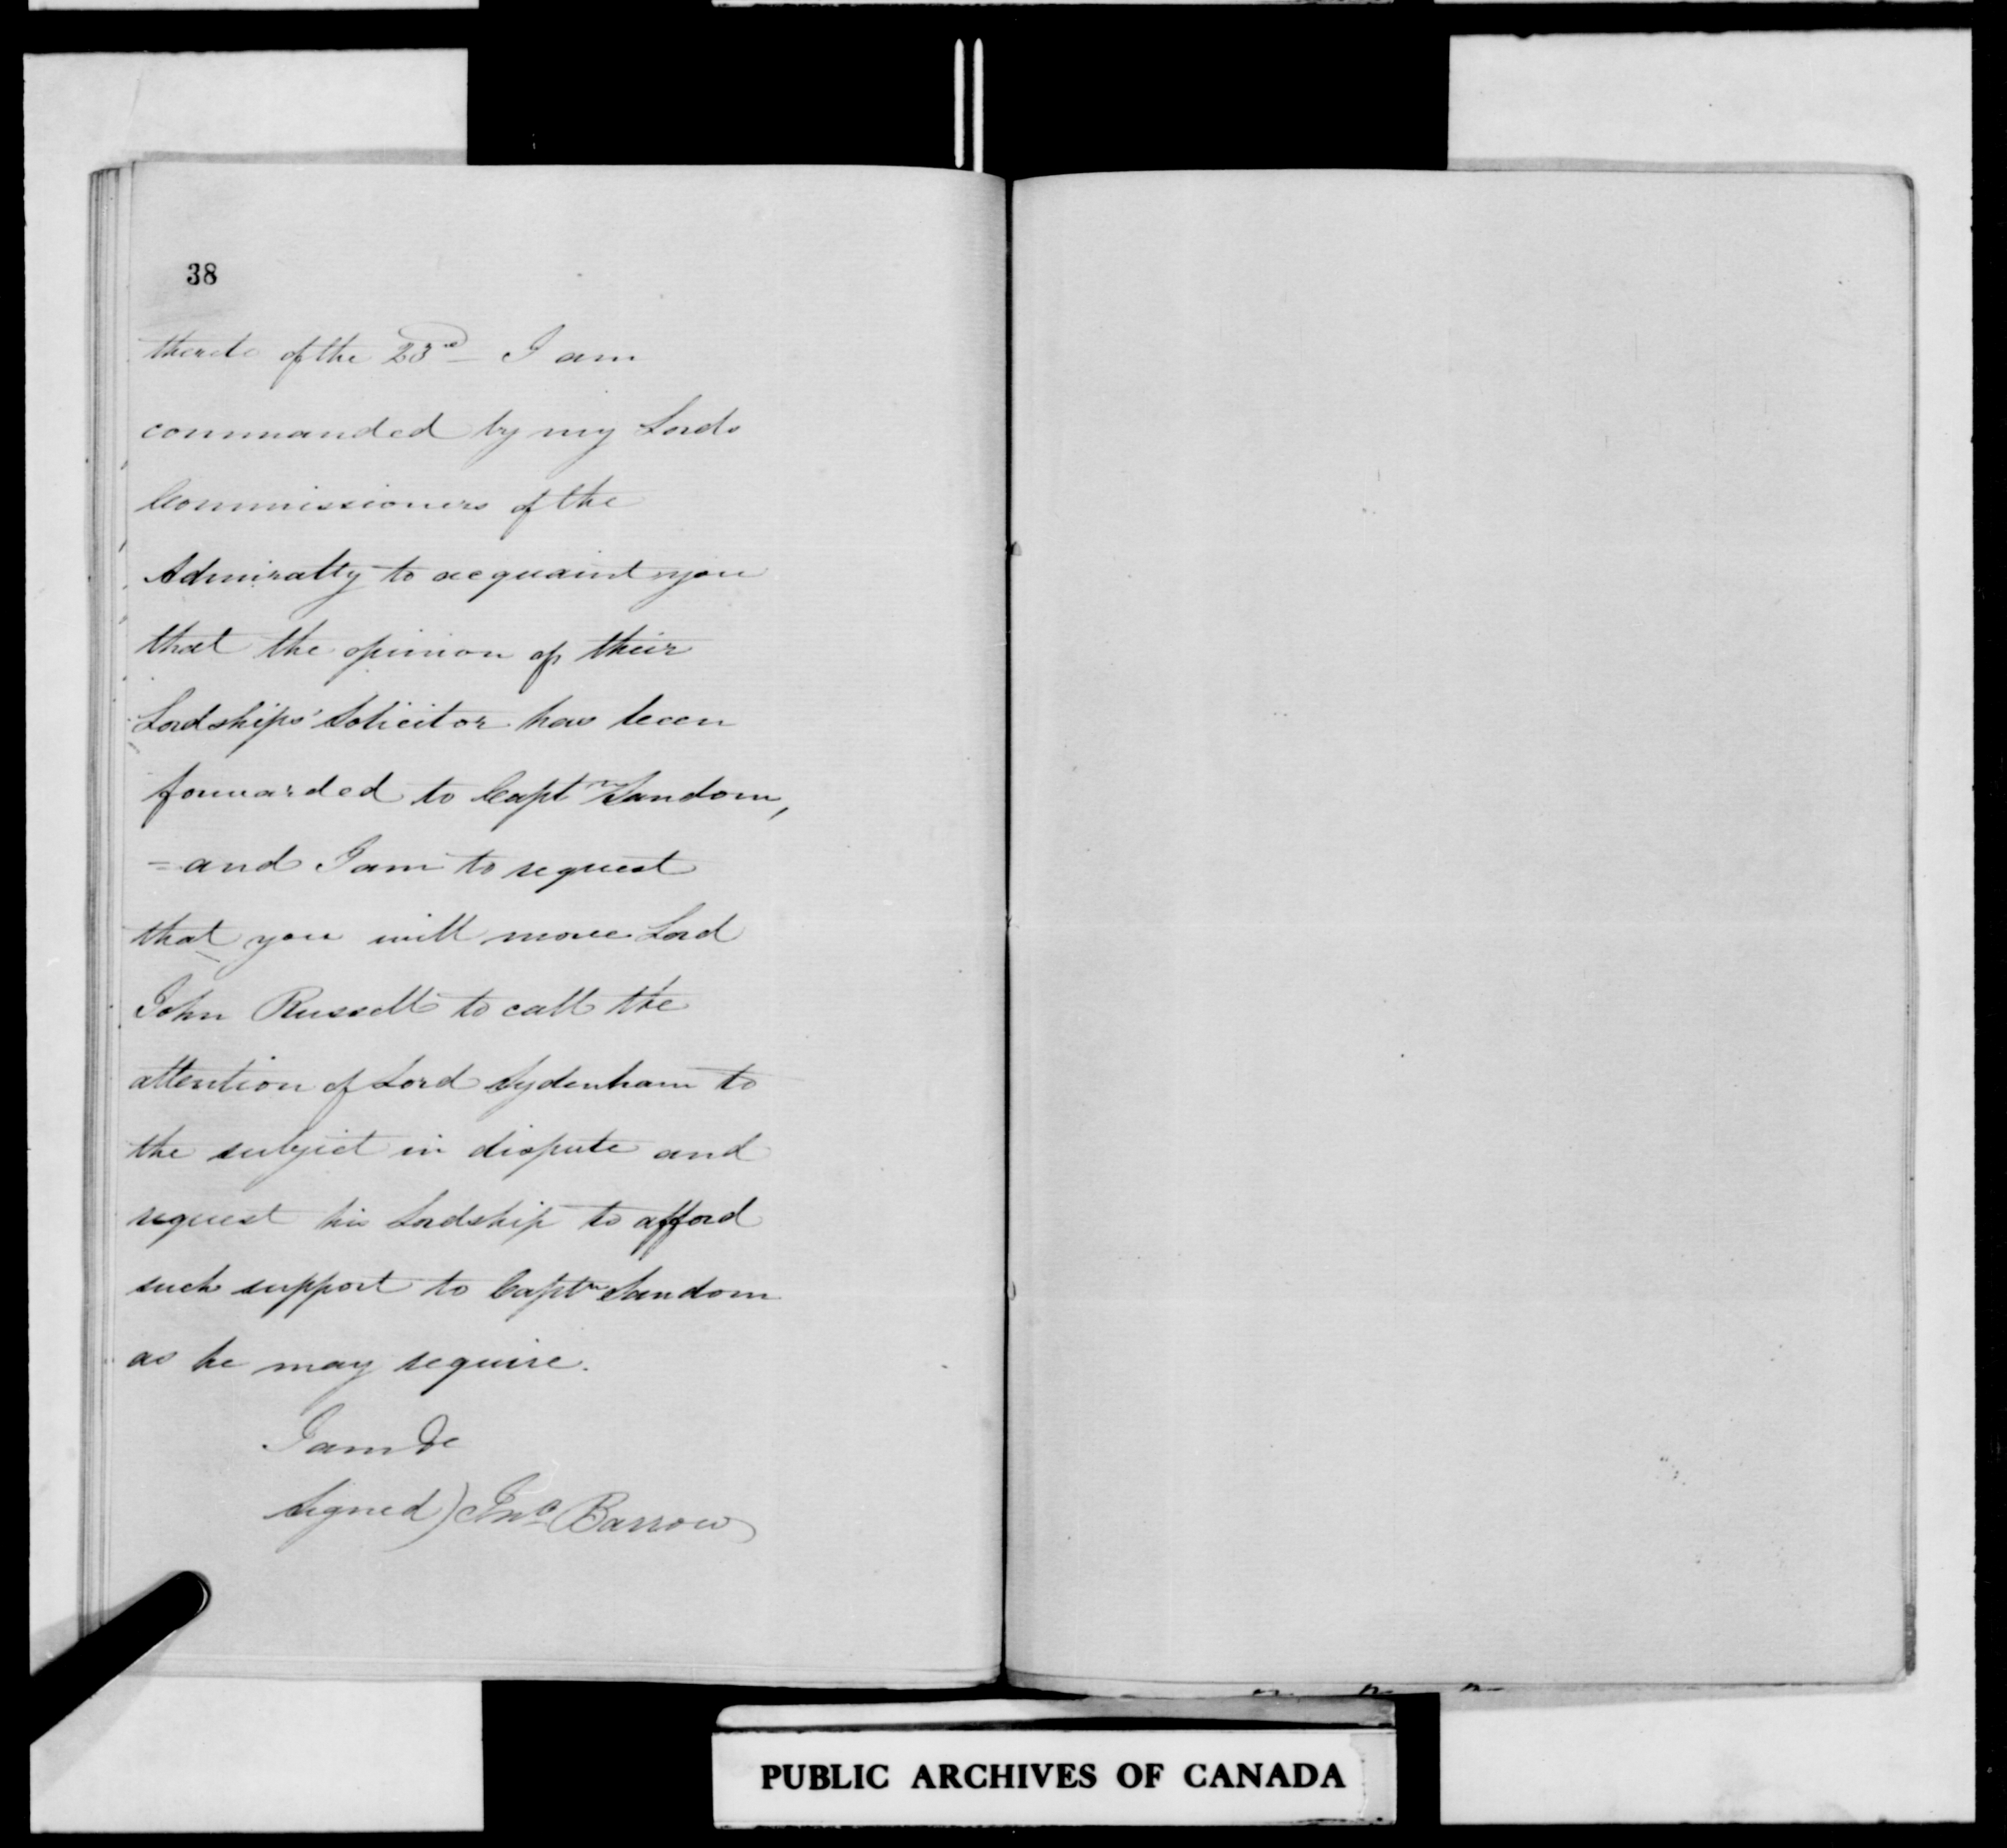 38
thereto of the 23rd I am
commanded by my Lords
Commissioners of the
Admiralty to acquaint you
that the opinion of their
Lordships' Solicitor has been
forwarded to Captn Sandom,
= and I am to request
that you will move Lord
John Russell to call the
attention of Lord Sydenham to
the subject in dispute and
request his Lordship to afford
such support to Captn Sandom
as he may require.
I am &c
Signed) Jno Barrow
PUBLIC ARCHIVES OF CANADA